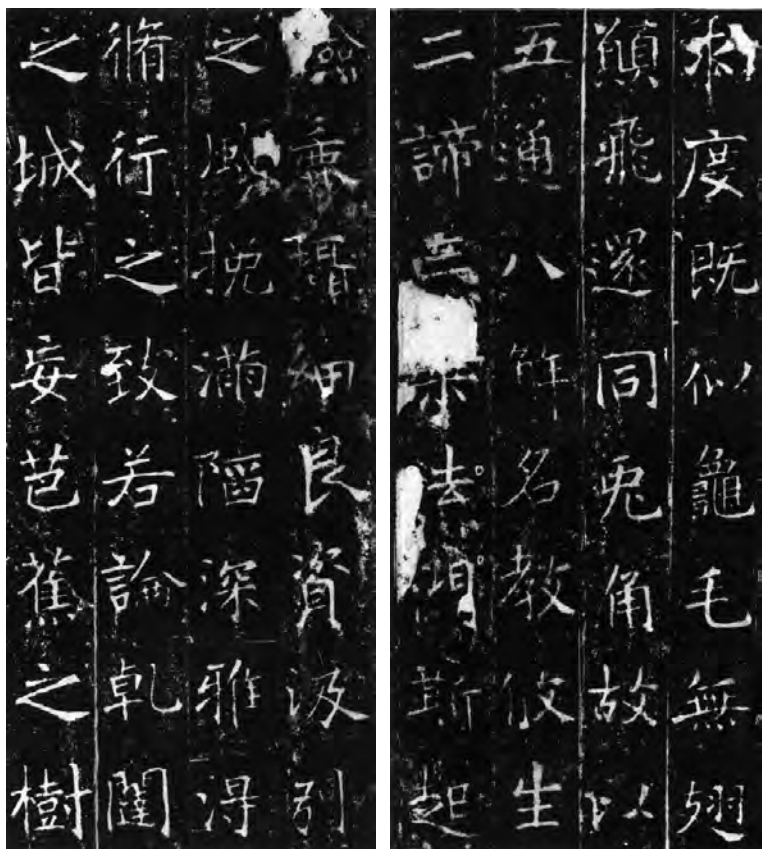 求度既似龜毛無翅
願飛還同兔角故以
五通八解名教攸生
二諦三乘法門斯起
紬良資汲引
之風挽滿陷深雅得
脩行之致若論乹闥
之城皆妄芭蕉之樹